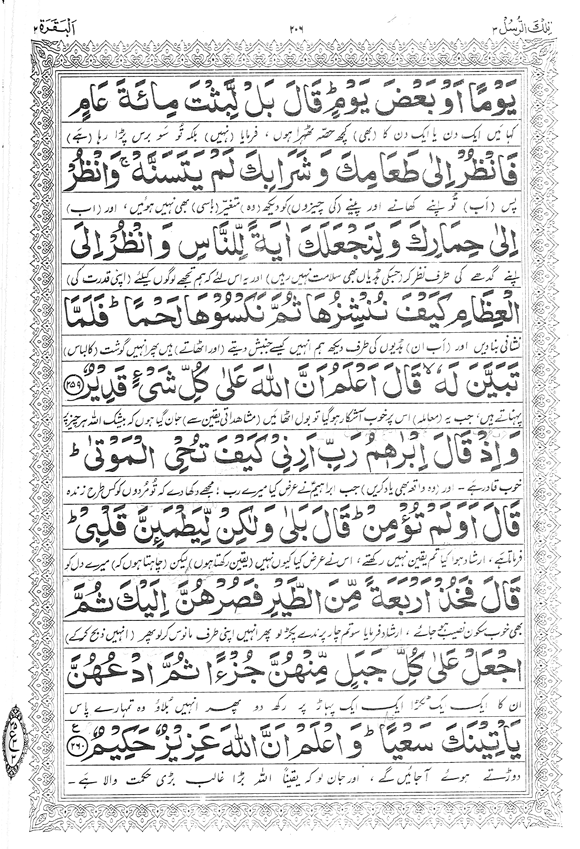 تِلْكَ الرُّسُلُ ۳ ۲۰۶ اَلْبَقَرَة ۲
يَوْمًا اَوْ بَعْضَ يَوْمٍ ؕ قَالَ بَلْ لَّبِثْتَ مِائَةَ عَامٍ
کہا میں ایک دن یا ایک دن کا (بھی) کچھ حصّہ ٹھہرا ہوں ، فرمایا (نہیں) بلکہ تُو سَو برس پڑا رہا (ہے)
فَانْظُرْ اِلٰى طَعَامِكَ وَشَرَابِكَ لَمْ يَتَسَنَّهْ ۚ وَانْظُرْ
پس (اَب) تُو اپنے کھانے اور پینے (کی چیزوں) کو دیکھ (وہ) متغیّر (باسی) بھی نہیں ہوئیں ، اور (اب)
اِلٰى حِمَارِكَ وَلِنَجْعَلَكَ اٰيَةً لِّلنَّاسِ وَانْظُرْ اِلَى
اپنے گدھے کی طرف نظر کر (جس کی ہڈیاں بھی سلامت نہیں رہیں) اور یہ اس لئے کہ ہم تجھے لوگوں کیلئے (اپنی قدرت کی)
الْعِظَامِ كَيْفَ نُنْشِزُهَا ثُمَّ نَكْسُوْهَا لَحْمًا ؕ فَلَمَّا
نشانی بنا دیں اور (اَب ان) ہڈیوں کی طرف دیکھ ہم انہیں کیسے جنبش دیتے (اور اٹھاتے) ہیں پھر انہیں گوشت (کا لباس)
تَبَيَّنَ لَهٗ ۙ قَالَ اَعْلَمُ اَنَّ اللّٰهَ عَلٰى كُلِّ شَىْءٍ قَدِيْرٌ ﴿۲۵۹﴾
پہناتے ہیں، جب یہ (معاملہ) اس پر خوب آشکار ہو گیا تو بول اٹھا میں (مشاہداتی یقین سے) جان گیا ہوں کہ بیشک اللہ ہر چیز پر
وَاِذْ قَالَ اِبْرٰهٖمُ رَبِّ اَرِنِىْ كَيْفَ تُحْىِ الْمَوْتٰى ؕ
خوب قادر ہے - اور (وہ واقعہ بھی یاد کریں) جب ابراہیم نے عرض کیا میرے رب ! مجھے دکھا دے کہ تُو مُردوں کو کس طرح زندہ
قَالَ اَوَلَمْ تُؤْمِنْ ؕ قَالَ بَلٰى وَلٰكِنْ لِّيَطْمَئِنَّ قَلْبِىْ ؕ
فرماتا ہے ، ارشاد ہوا کیا تم یقین نہیں رکھتے ، اس نے عرض کیا کیوں نہیں (یقین رکھتا ہوں) لیکن (چاہتا ہوں کہ) میرے دل کو
قَالَ فَخُذْ اَرْبَعَةً مِّنَ الطَّيْرِ فَصُرْهُنَّ اِلَيْكَ ثُمَّ
بھی خوب سکون نصیب ہو جائے ، ارشاد فرمایا سو تم چار پرندے پکڑ لو پھر انہیں اپنی طرف مانوس کر لو پھر (انہیں ذبح کر کے)
اجْعَلْ عَلٰى كُلِّ جَبَلٍ مِّنْهُنَّ جُزْءًا ثُمَّ ادْعُهُنَّ
ان کا ایک ایک ٹکڑا ایک ایک پہاڑ پر رکھ دو پھر انہیں بُلاؤ وہ تمہارے پاس
يَاْتِيْنَكَ سَعْيًا ؕ وَاعْلَمْ اَنَّ اللّٰهَ عَزِيْزٌ حَكِيْمٌ ﴿۲۶۰﴾ ع
دوڑتے ہوئے آجائیں گے ، اور جان لو کہ یقینًا اللہ بڑا غالب بڑی حکمت والا ہے -